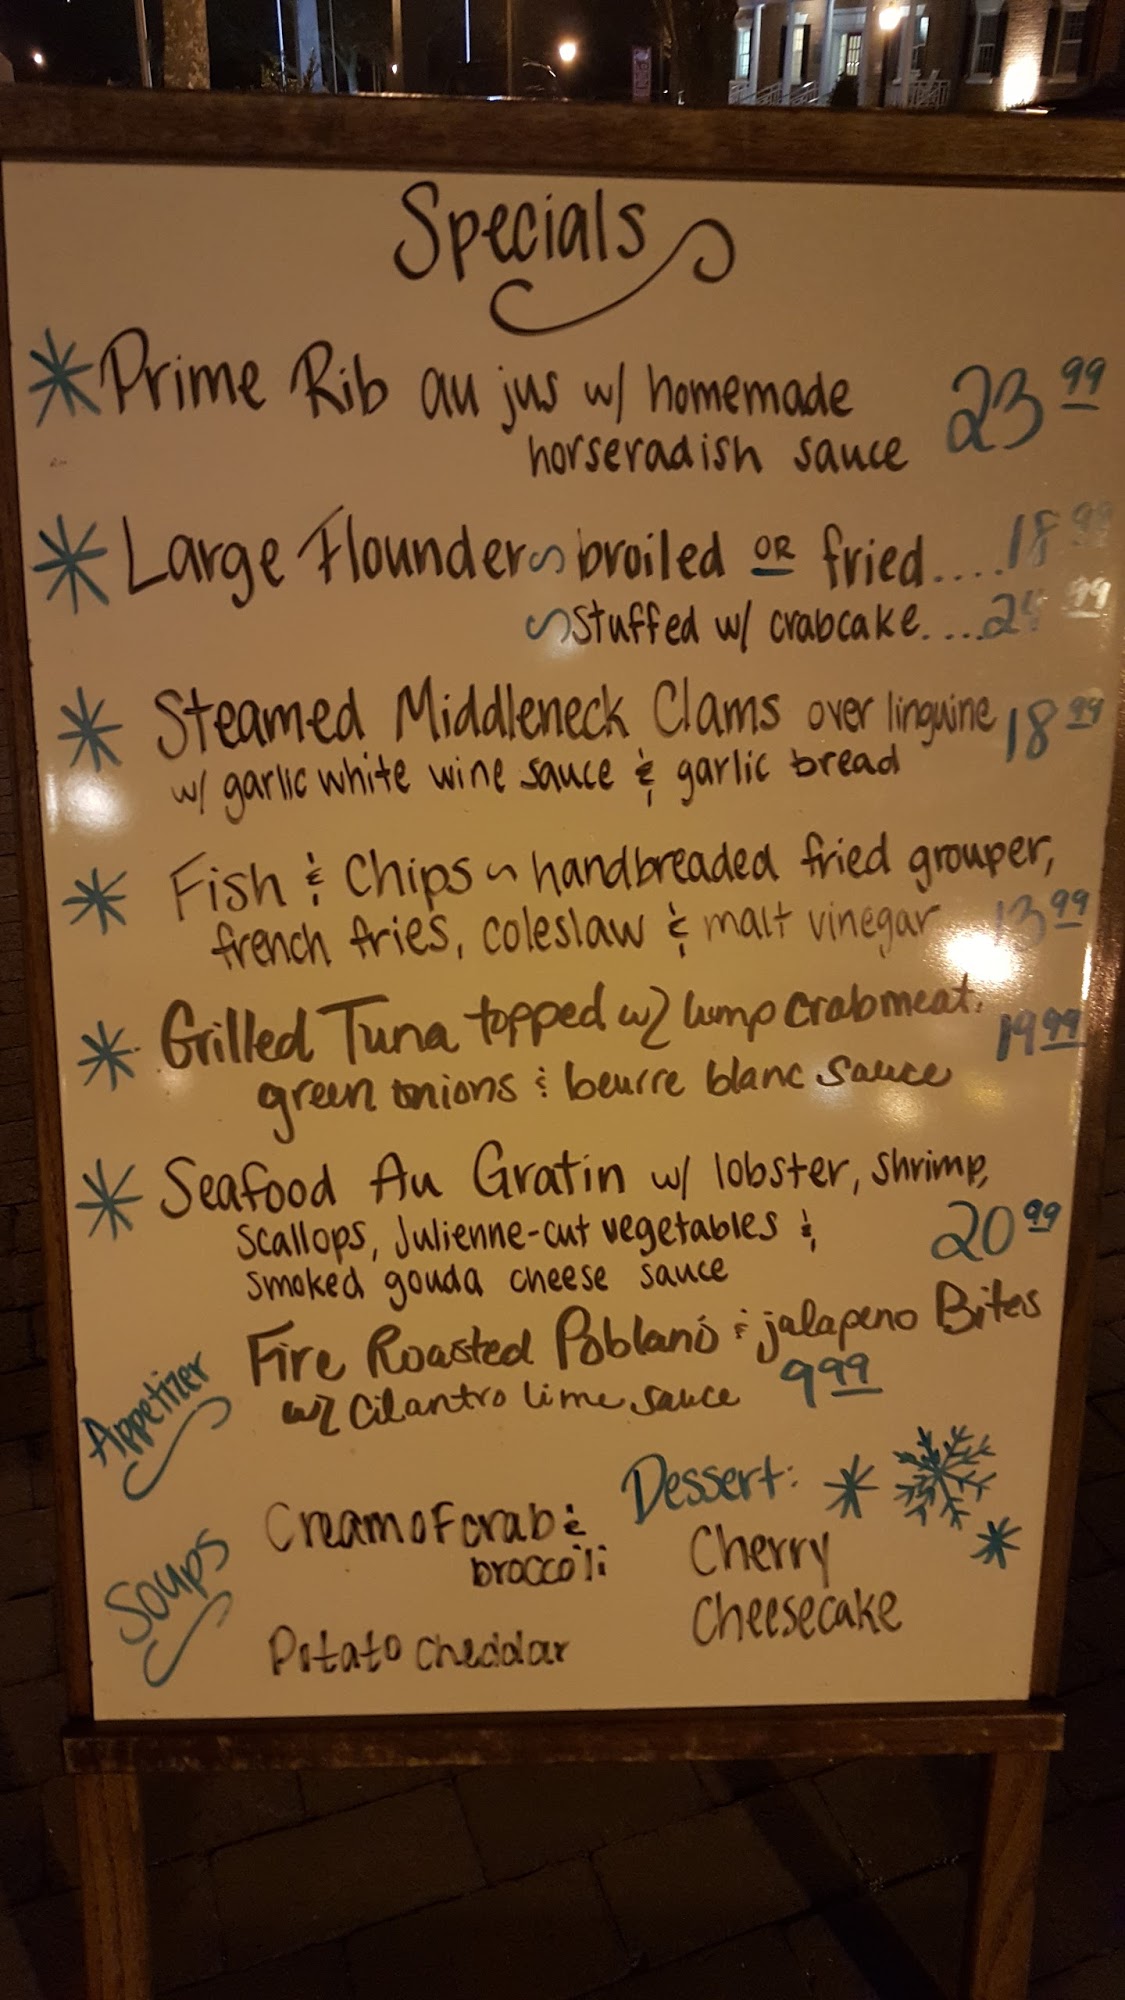 Specials
Prime Rib au jus w/ homemade 23 99
horseradish sauce
Large Flounder ~ broiled OR fried....18 99
~ Stuffed w/ crabcake....24 99
Steamed Middleneck Clams over linguine 18 99
w/ garlic white wine sauce & garlic bread
Fish & Chips ~ handbreaded fried grouper,
french fries, coleslaw & malt vinegar 13 99
Grilled Tuna topped w/ lump crabmeat, 19 99
green onions & beurre blanc sauce
Seafood Au Gratin w/ lobster, shrimp,
scallops, Julienne-cut vegetables & 20 99
smoked gouda cheese sauce
Appetizer
Fire Roasted Poblano & jalapeno Bites
w/ Cilantro lime sauce 9 99
Soups
Cream of crab &
broccoli
Potato cheddar
Dessert:
Cherry
Cheesecake